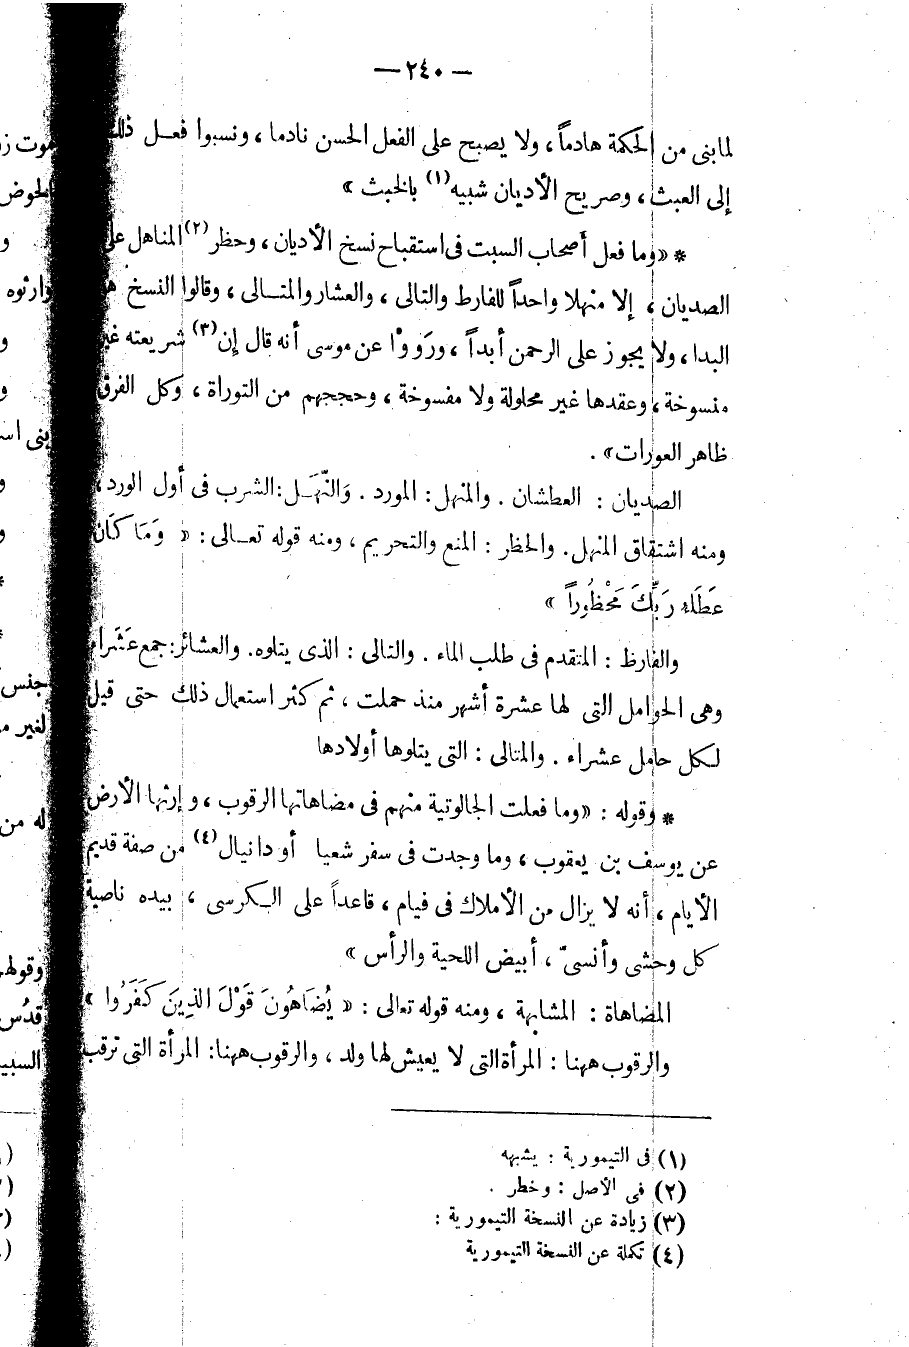 — ٢٤٠ —
لما بنى من الحكمة هادماً ، ولا يصبح على الفعل الحسن نادما ، ونسبوا فعل ذلك
إلى العبث ، وصريح الأديان شبيه (١) بالخبث »
* « وما فعل أصحاب السبت فى استقباح نسخ الأديان ، وحظر (٢) المناهل على
الصديان ، إلا منهلا واحداً للفارط والتالى ، والعشار والمتالى ، وقالوا النسخ
البدا ، ولا يجوز على الرحمن أبداً ، ورَوَوْا عن موسى أنه قال إن (٣) شريعته غير
منسوخة ، وعقدها غير محلولة ولا مفسوخة ، وحججهم من التوراة ، وكل الفرق
ظاهر العورات » .
الصديان : العطشان . والمنهل : المورد . وَالنَّهَل : الشرب فى أول الورد ،
ومنه اشتقاق المنهل . والحظر : المنع والتحريم ، ومنه قوله تعالى : « وَمَا كَانَ
عَطَاءُ رَبِّكَ مَحْظُوراً »
والفارظ : المتقدم فى طلب الماء . والتالى : الذى يتلوه . والعشائر : جمع عَشَراء
وهى الحوامل التى لها عشرة أشهر منذ حملت ، ثم كثر استعمال ذلك حتى قيل
لكل حامل عشراء . والمتالى : التى يتلوها أولادها
* وقوله : « وما فعلت الجالوتية منهم فى مضاهاتها الرقوب ، و إرثها الأرض
عن يوسف بن يعقوب ، وما وجدت فى سفر شعيا أو دانيال (٤) من صفة قديم
الأيام ، أنه لا يزال من الأملاك فى فيام ، قاعداً على الكرسى ، بيده ناصية
كل وحشى وأنسىّ ، أبيض اللحية والرأس »
المضاهاة : المشابهة ، ومنه قوله تعالى : « يُضَاهُونَ قَوْلَ الذِينَ كَفَرُوا »
والرقوب ههنا : المرأة التى لا يعيش لها ولد ، والرقوب ههنا : المرأة التى ترقب
(١) فى التيمورية : يشبهه
(٢) فى الأصل : وخطر .
(٣) زيادة عن النسخة التيمورية :
(٤) تكملة عن النسخة التيمورية